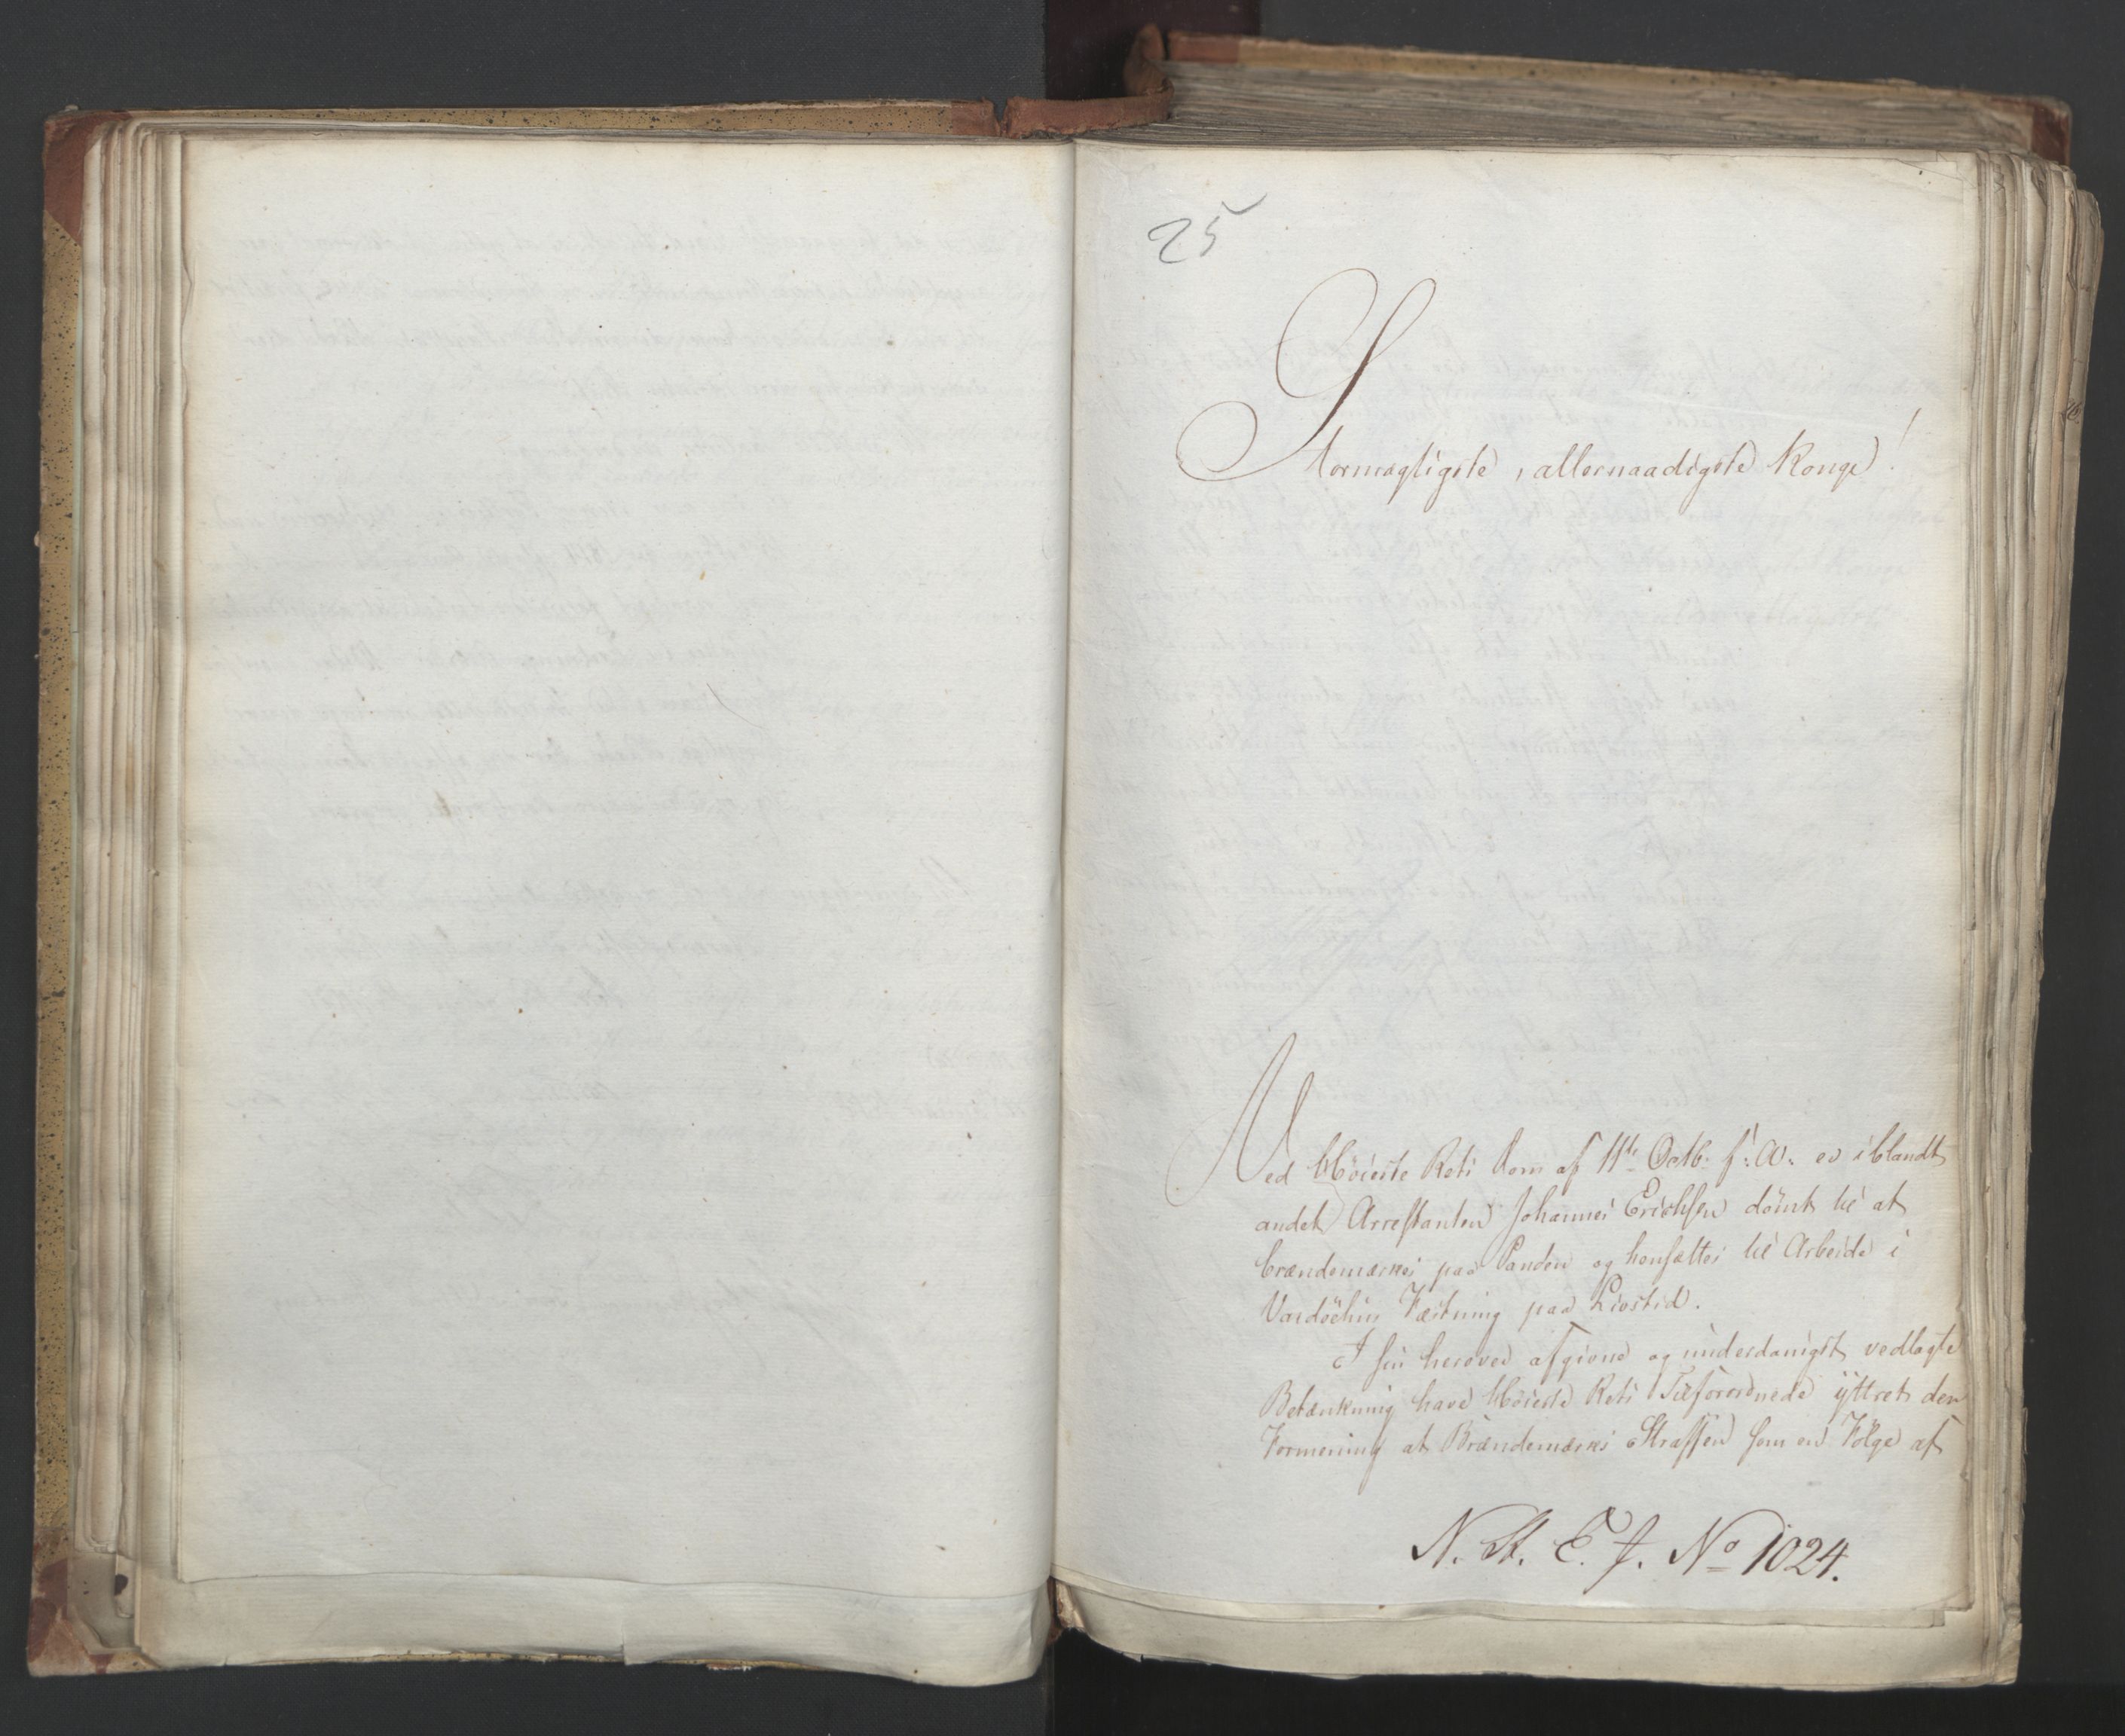 25
Stormægtigste, allernaadigste Konge!
Ved Höieste Rets Dom af 11te Octb: f: A: er iblandt
andet Arrestanten Johannes Erichsen dömt til at
brændemærkes paa Panden og hensættes til Arbeide i
Vardöehus Fæstning paa Livstid.
I sin herover afgivne og underdanigst vedlagte
Betænkning have Höieste Rets Tilforordnede ÿttret den
Formening at Brændemærkes Straffen som en Fölge af
N. St. E. J. No 1024.